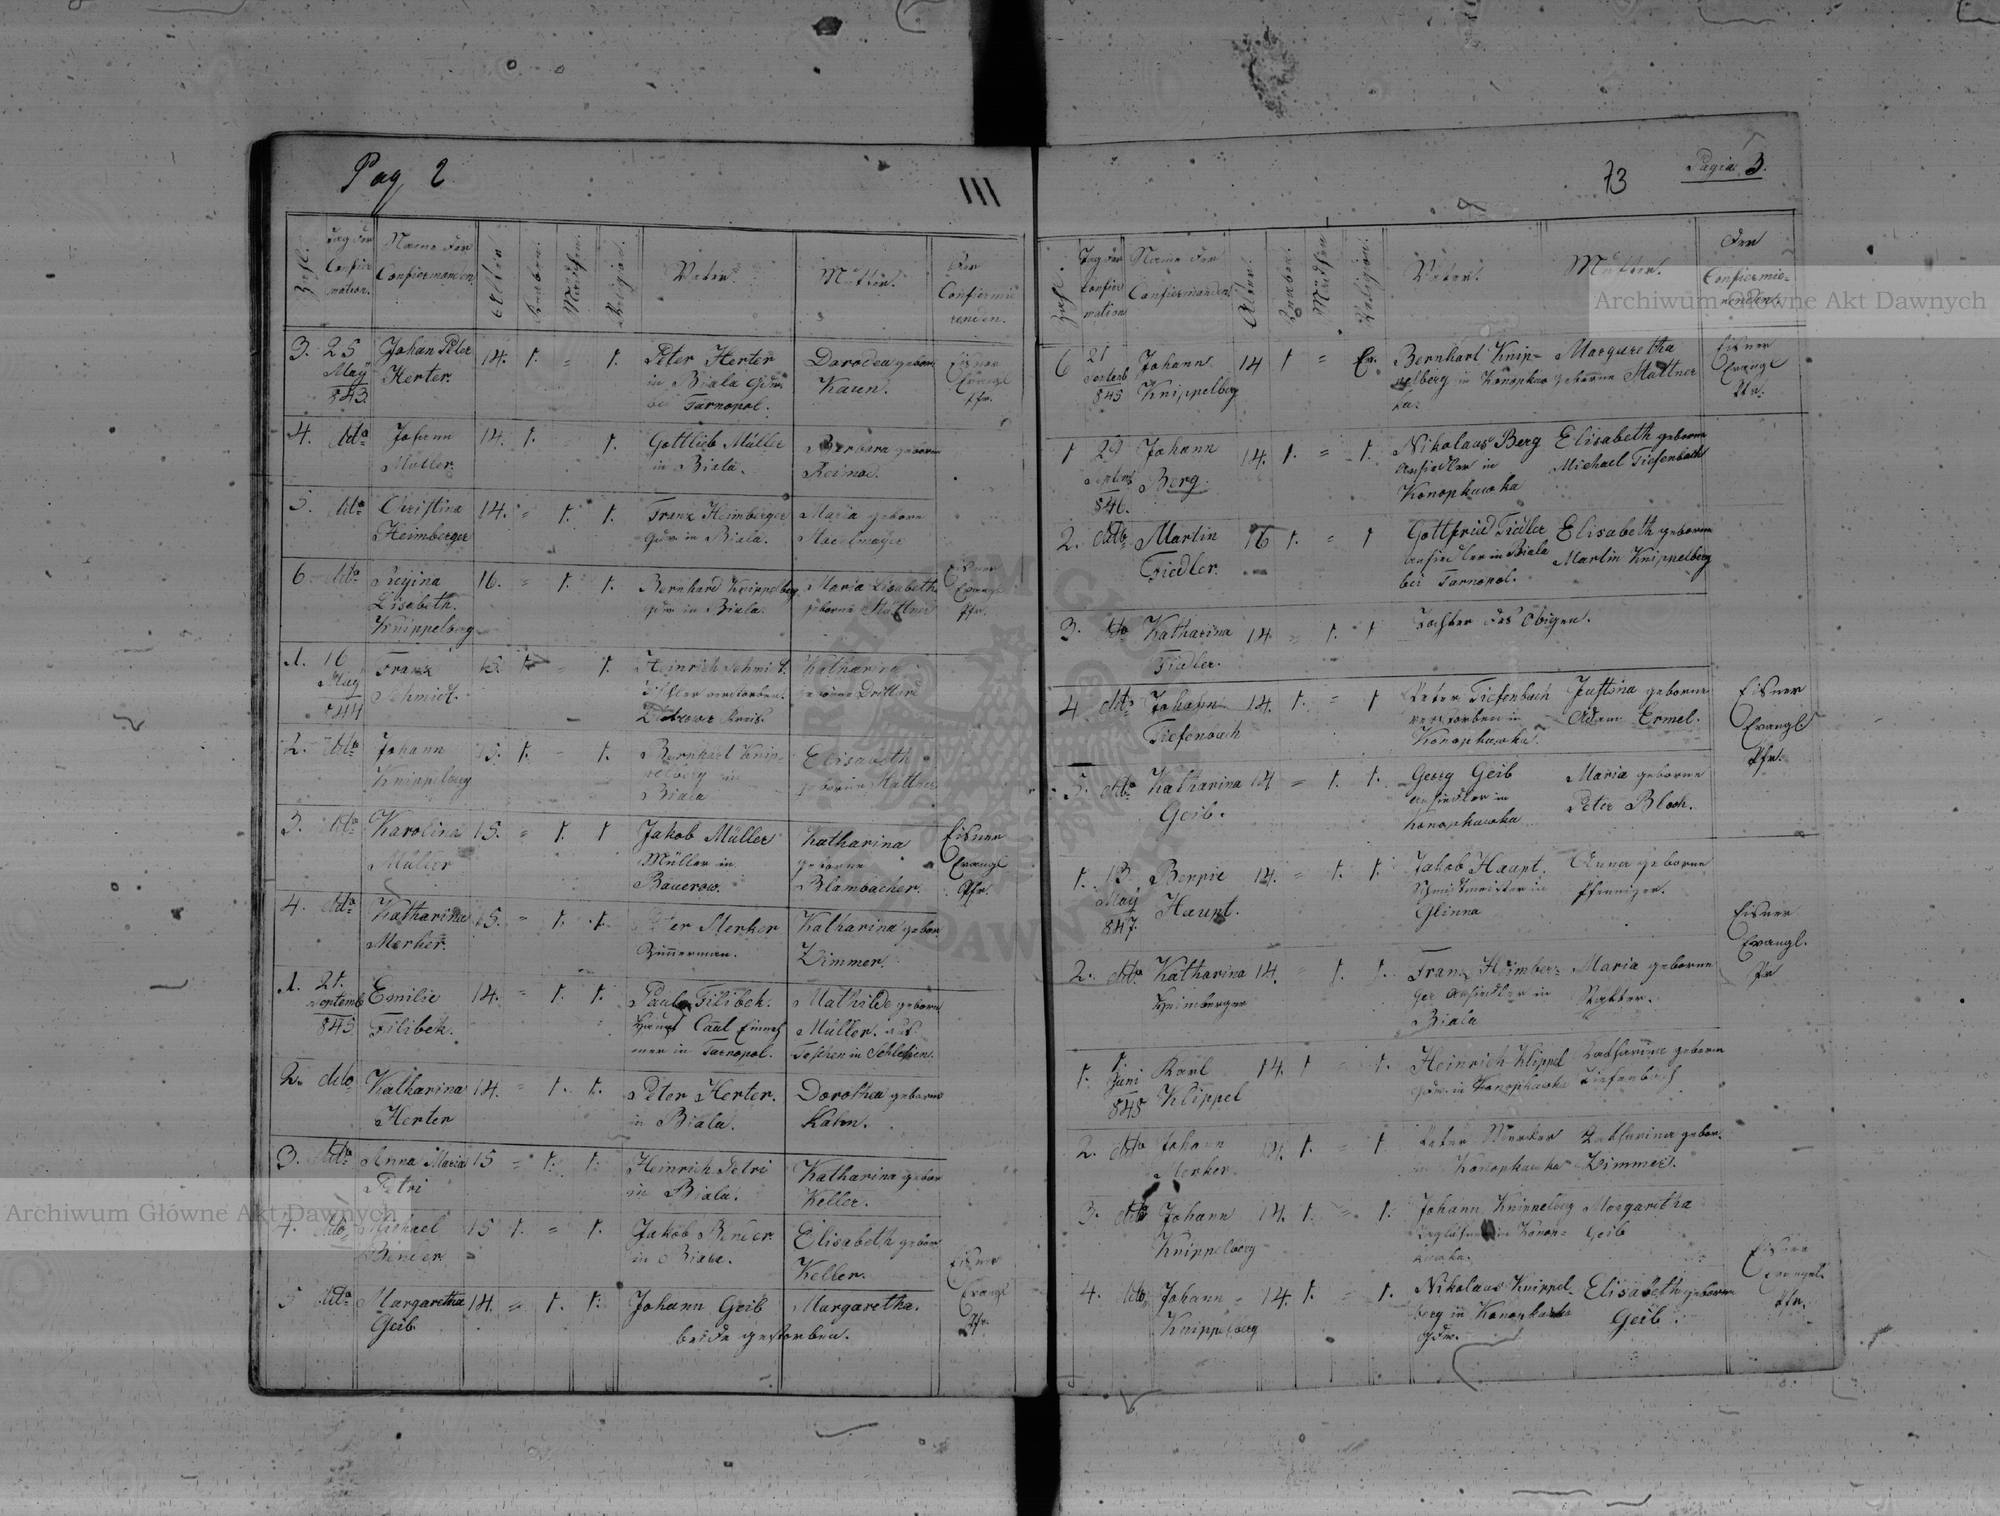 Pag 2
III
Zahl.
Tag der Confirmation.
Name der Confirmanden.
Alter
Knaben.
Mädchen.
Religion.
Vater.
Mutter.
Der Confirmirenden.
3. 25 May 843. Johan Peter Herter. 14. 1. = 1. Peter Herter in Biala bei Tarnopol. Dorodea gebor Kaun. Eisner Evangl Pfr.
4. dto Johann Müller 14. 1. 1. Gottlieb Müller in Biala. Barbara geborn
5. dto Christina Heimberger 14. = 1. 1. Franz Heimberger in Biala. Maria geborn
6. dto Regina Lisabeth. Knippelberg 16. = 1. 1. Bernhard Knippelberg in Biala. Maria Lisabetha geborne Stattner Eisner Evangl Pfr.
1. 16 May 844 Franz Schmidt. 15. 1. = 1. Heinrich Schmidt. verstorben. Kreis. Katharina geborne
2. dto Johann Knippelberg 15. 1. 1. Bernhart Knippelberg in Biala Elisabeth geborne Stattner
3. dto Karolina Müller 15. = 1. 1 Jakob Müller Müller in Bauerow. Katharina geborne Blambacher. Eisner Evangl Pfr.
4. dto Katharina Merker. 15. = 1. 1. Peter Merker Zimmerman. Katharina gebor Zimmer.
1. 21. Septemb 845 Emilie Filibek. 14. = 1. 1. Paul Filibek. in Tarnopol. Mathilde geborn Müller. aus Teschen in Schlesien.
2. dto Katharina Herter 14. = 1. 1. Peter Herter. in Biala. Dorothea geborne Kahn.
3. dto Anna Maria Petri 15 = 1. 1. Heinrich Petri in Biala. Katharina gebor Keller.
4. dto Michael Bender. 15 1. = 1. Jakob Bender in Biala. Elisabeth gebor Keller.
5 dto Margaretha Geib 14. = 1. 1. Johann Geib Margaretha. beide gestorben. Eisner Evangl Pfr.
73
Pagia 3.
Zahl.
Tag der Confirmation
Name der Confirmanden.
Alter.
Knaben.
Mädchen
Religion.
Vater.
Mutter.
Der Confirmirenden.
6 21 Septemb 845 Johann Knippelberg 14 1 = Ev. Bernhart Knippelberg in Konopkawka. Margaretha geborne Stattner Eisner Evangl Pfr.
1 29 Septem 846. Johann Berg. 14. 1. = 1. Nikolaus Berg Ansiedler in Konopkawka Elisabeth geborne Michael Tiefenbach
2. dto Martin Fiedler. 16 1. = 1 Gottfried Fiedler Ansiedler in Biala bei Tarnopol. Elisabeth geborne Martin Knippelberg
3. dto Katharina Fiedler. 14. = 1. 1 Tochter des Obigen.
4 dto Johann Tiefenbach 14. 1. = 1 Peter Tiefenbach verstorben in Konopkawka. Justina geborne Adam Ermel. Eisner Evangl Pfr.
5. dto Katharina Geib. 14 = 1. 1. Georg Geib Ansiedler in Konopkawka Maria geborne Peter Bloch.
1. 13 May 847. Haupt. 14. = 1. 1. Jakob Haupt. Schmidtmeister in Glinna Anna geborne Pfenniger. Eisner Evangl. Pfr
2. dto Katharina Heimberger 14. = 1. 1. Franz Heimberger Ansiedler in Biala Maria geborne
1. 1 Juni 848 Karl Klippel 14. 1 = 1. Heinrich Klippel in Konopkawka Katharine geborn Tiefenbach
2. dto Johann Merker 14. 1. = 1. Peter Merker in Konopkawka Katharina gebor. Zimmer.
3. dto Johann Knippelberg 14. 1. = 1. Johann Knippelberg in Konopkawka. Margaretha Geib
4. dto Johann Knippelberg 14. 1. = 1. Nikolaus Knippelberg in Konopkawka Elisabeth geborne Geib. Eisner Evangel. Pfr.
Archiwum Główne Akt Dawnych
Archiwum Główne Akt Dawnych